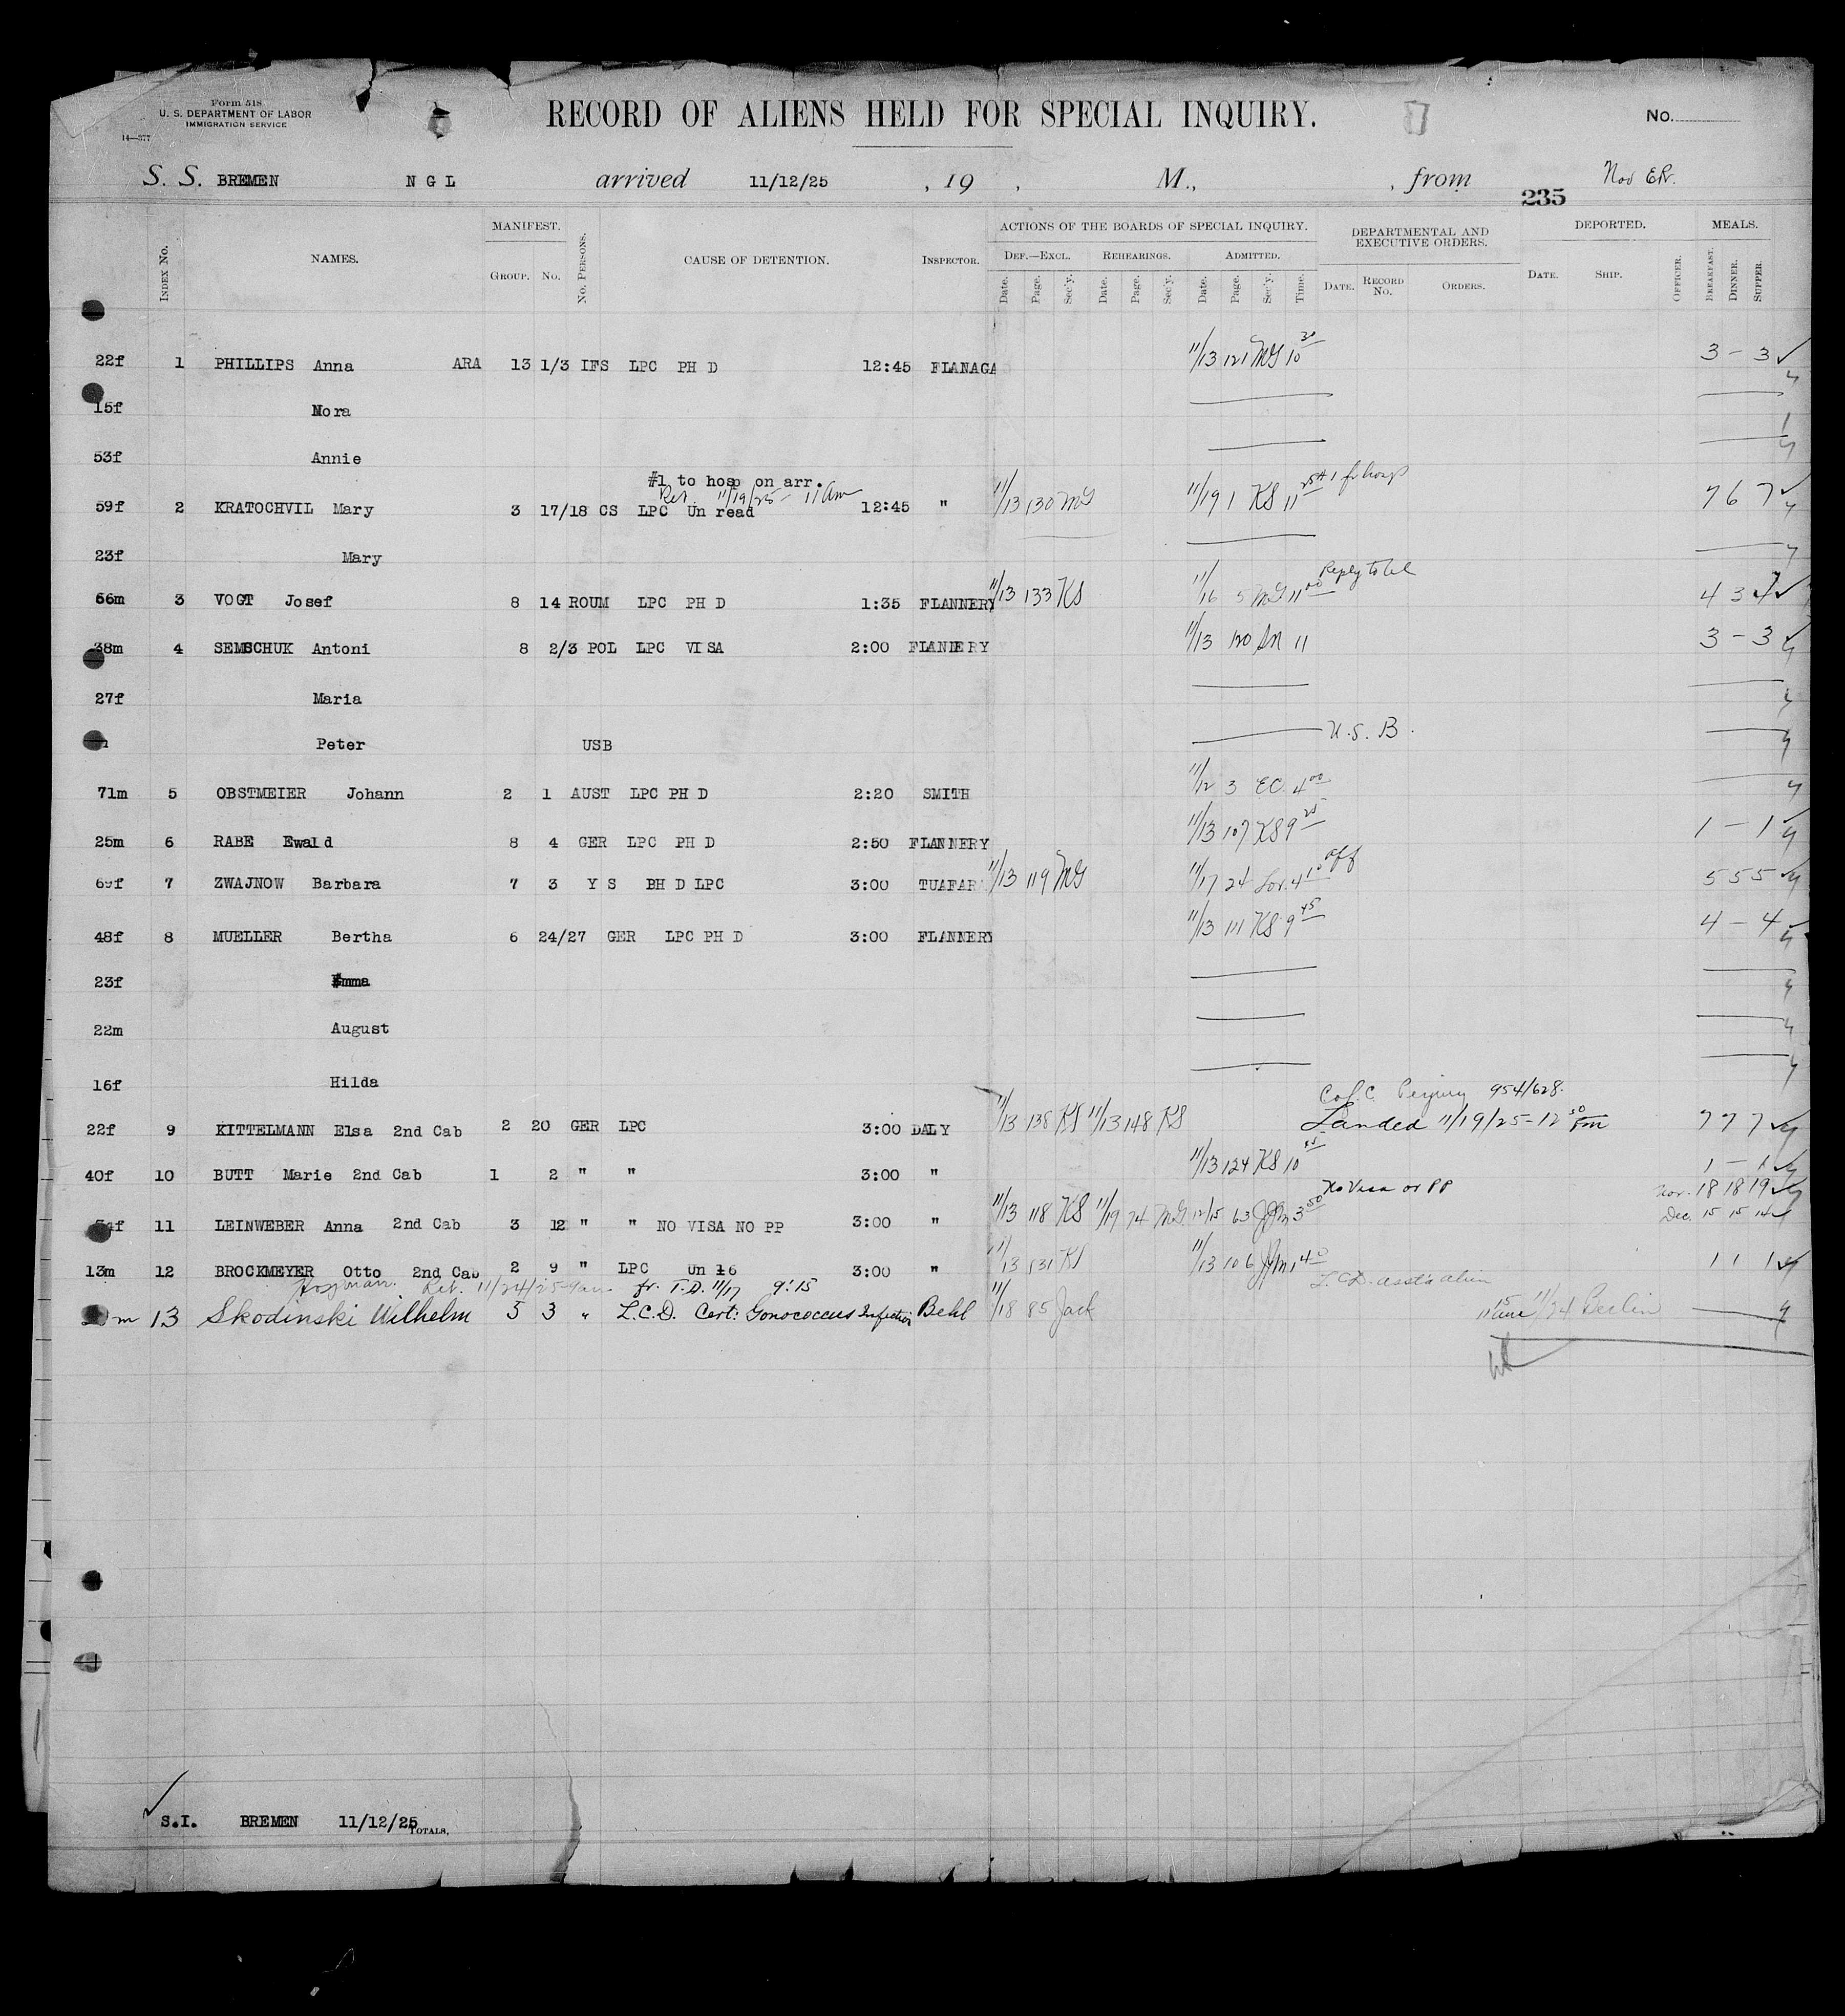 Form 518
U. S. DEPARTMENT OF LABOR
IMMIGRATION SERVICE
14—377
RECORD OF ALIENS HELD FOR SPECIAL INQUIRY.
No.
S. S. BREMEN N G L arrived 11/12/25 , 19 , M., , from Nov
235
INDEX NO. NAMES. MANIFEST. GROUP. NO. NO. PERSONS. CAUSE OF DETENTION. INSPECTOR. ACTIONS OF THE BOARDS OF SPECIAL INQUIRY. DEF.—EXCL. Date. Page. Sec'y. REHEARINGS. Date. Page. Sec'y. ADMITTED. Date. Page. Sec'y. Time. DEPARTMENTAL AND EXECUTIVE ORDERS. DATE. RECORD NO. ORDERS. DEPORTED. DATE. SHIP. OFFICER. MEALS. BREAKFAST. DINNER. SUPPER.
22f 1 PHILLIPS Anna ARA 13 1/3 IFS LPC PH D 12:45 FLANAGA 11/13 121 MG 10 30 3 – 3
15f Nora
53f Annie
#1 to hosp on arr.
Ret. 11/19/25 – 11 am
59f 2 KRATOCHVIL Mary 3 17/18 CS LPC Un read 12:45 " 11/13 130 MG 11/19 1 KS 11 25 #1 fr hosp 7 6 7
23f Mary
56m 3 VOGT Josef 8 14 ROUM LPC PH D 1:35 FLANNERY 11/13 133 KS 11/16 5 MG 11 00 Reply to tel 4 3 4
38m 4 SEMSCHUK Antoni 8 2/3 POL LPC VISA 2:00 FLANNERY 11/13 120 11 3 – 3
27f Maria
Peter USB U.S.B.
71m 5 OBSTMEIER Johann 2 1 AUST LPC PH D 2:20 SMITH 11/12 3 EC 4 00
25m 6 RABE Ewald 8 4 GER LPC PH D 2:50 FLANNERY 11/13 107 KS 9 25 1 – 1
69f 7 ZWAJNOW Barbara 7 3 Y S BH D LPC 3:00 TUAFAR 11/13 119 MG 11/17 24 4 10 5 5 5
48f 8 MUELLER Bertha 6 24/27 GER LPC PH D 3:00 FLANNERY 11/13 111 KS 9 45 4 – 4
23f Emma
22m August
16f Hilda
954/628.
22f 9 KITTELMANN Elsa 2nd Cab 2 20 GER LPC 3:00 DALY 11/13 138 KS 11/13 148 KS Landed 11/19/25 – 12 30 Pm 7 7 7
40f 10 BUTT Marie 2nd Cab 1 2 " " 3:00 " 11/13 124 KS 10 1 – 1
No Visa or PP Nov. 18 18 19
11 LEINWEBER Anna 2nd Cab 3 12 " " NO VISA NO PP 3:00 " 11/13 118 KS 11/19 74 MG 12/15 63 JJM 3 50 Dec. 15 15 14
13m 12 BROCKMEYER Otto 2nd Cab 2 9 " LPC Un 16 3:00 " 11/13 131 KS 11/13 106 JJM 4 1 1 1
Ret. 11/24/25-9am fr. T.D. 11/17 9:15
m 13 Skodinski Wilhelm 5 3 " L.C.D. Cert: Gonococcus Infection Behl 11/18 85 Jack 11/24 Berlin
S.I. BREMEN 11/12/25 TOTALS.